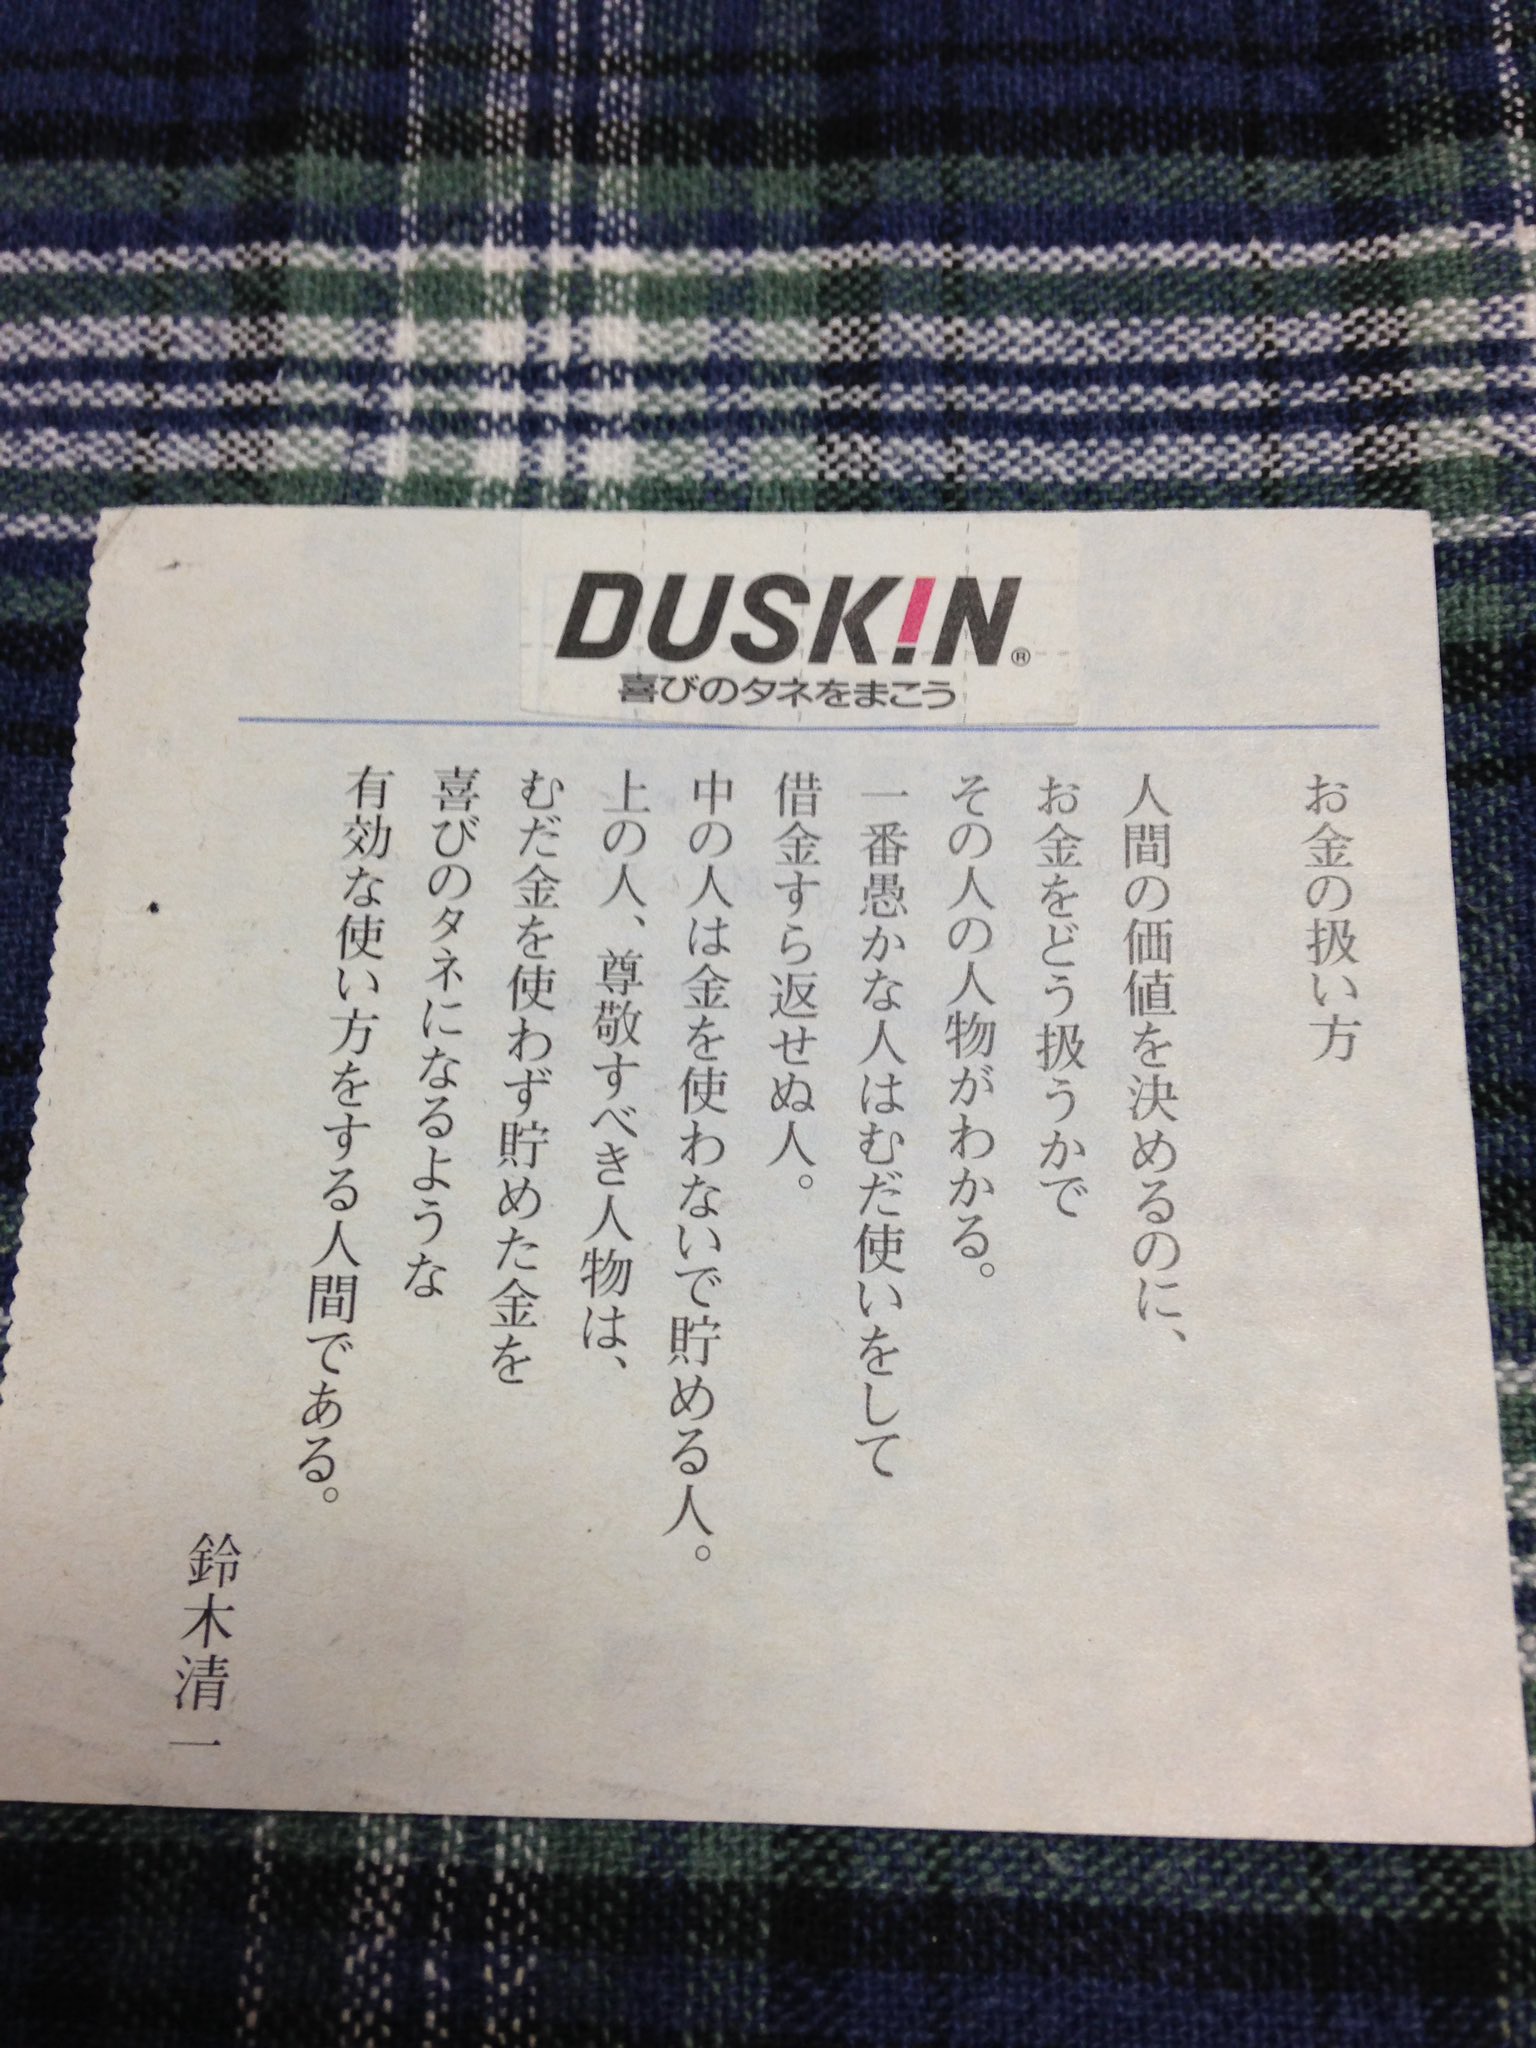 DUSKIN®
喜びのタネをまこう
お金の扱い方
人間の価値を決めるのに、
お金をどう扱うかで
その人の人物がわかる。
一番愚かな人はむだ使いをして
借金すら返せぬ人。
中の人は金を使わないで貯める人。
上の人、尊敬すべき人物は、
むだ金を使わず貯めた金を
喜びのタネになるような
有効な使い方をする人間である。
鈴木清一